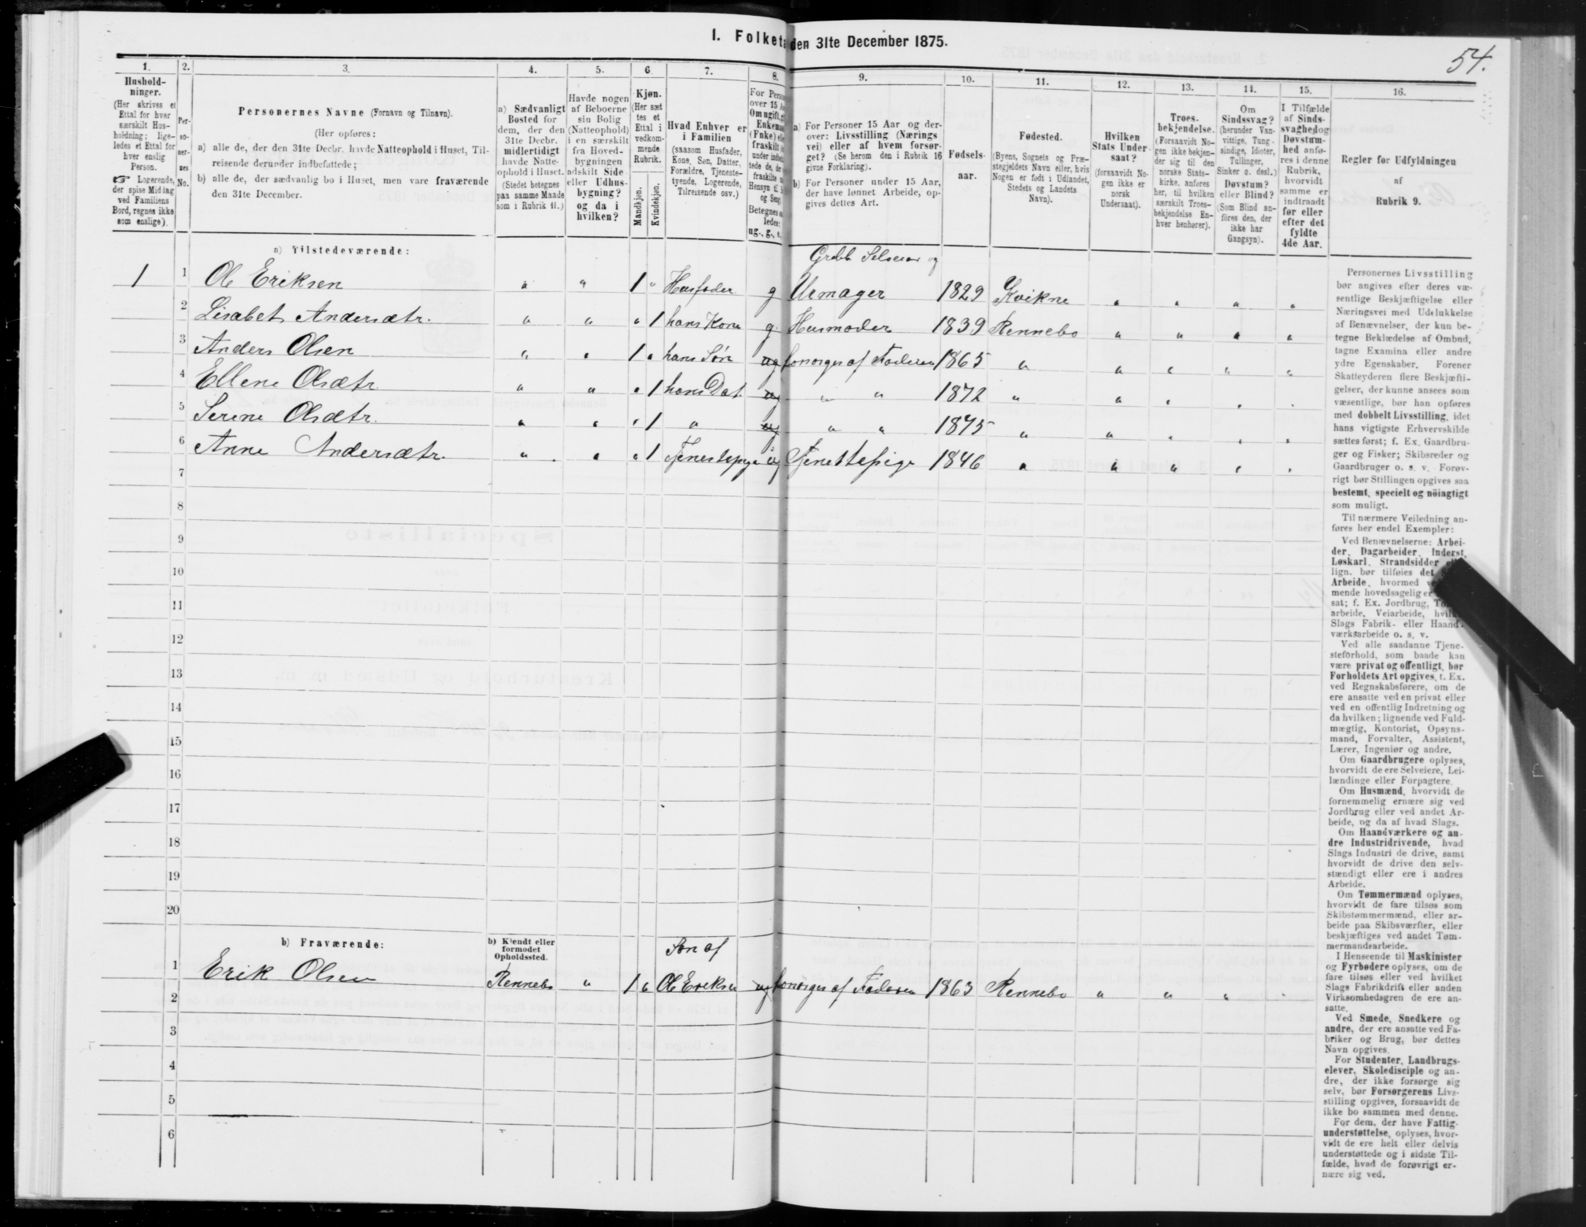 I. Folketæ den 31te December 1875.
54.
1. 2. 3. 4. 5. 6. 7. 8. 9. 10. 11. 12. 13. 14. 15. 16.
Hushold-
ninger.
(Her skrives et
Ettal for hver
særskilt Hus-
holdning; lige-
ledes et Ettal for
hver enslig
Person.
☞ Logerende,
der spise Middag
ved Familiens
Bord, regnes ikke
som enslige).
Per-
so-
ner-
nes
No.
Personernes Navne (Fornavn og Tilnavn).
(Her opføres:
a) alle de, der den 31te Decbr. havde Natteophold i Huset, Til-
reisende derunder indbefattede;
b) alle de, der sædvanlig bo i Huset, men vare fraværende
den 31te December.
a) Sædvanligt
Bosted for
dem, der den
31te Decbr.
midlertidigt
havde Natte-
ophold i Huset.
(Stedet betegnes
paa samme Maade
som i Rubrik 11.)
Havde nogen
af Beboerne
sin Bolig
(Natteophold)
i en særskilt
fra Hoved-
bygningen
adskilt Side
eller Udhus-
bygning?
og da i
hvilken?
Kjøn.
(Her sæt
tes et
Ettal i
vedkom-
mende
Rubrik.
Mandkjøn.
Kvindekjøn.
Hvad Enhver er
i Familien
(saasom Husfader,
Kone, Søn, Datter,
Forældre, Tjeneste-
tyende, Logerende,
Tilreisende osv.)
For Perso
over 15 A
Om ugift,
Enkema
(Enke) el
fraskilt
under indb
tede de, d
fraskilte
Hensyn til
og Seng
Betegnes
ledes:
ug., g., e.
a) For Personer 15 Aar og der-
over: Livsstilling (Nærings
vei) eller af hvem forsør-
get? (Se herom den i Rubrik 16
givne Forklaring).
b) For Personer under 15 Aar,
der have lønnet Arbeide, op-
gives dettes Art.
Fødsels-
aar.
Fødested.
(Byens, Sognets og Præ-
stegjeldets Navn eller, hvis
Nogen er født i Udlandet,
Stedets og Landets
Navn).
Hvilken
Stats Under-
saat?
(forsaavidt No-
gen ikke er
norsk
Undersaat).
Troes-
bekjendelse.
(Forsaavidt No-
gen ikke bekjen-
der sig til den
norske Stats-
kirke, anføres
her, til hvilken
særskilt Troes-
bekjendelse En-
hver henhører).
Om
Sindssvag?
(herunder Van-
vittige, Tung-
sindige, Idioter,
Tullinger,
Sinker o. desl.)
Døvstum?
eller Blind?
(Som Blind an-
føres den, der
ikke har
Gangsyn).
I Tilfælde
af Sinds-
svaghed og
Døvstum-
hed anfø-
res i denne
Rubrik,
hvorvidt
samme er
indtraadt
før eller
efter det
fyldte
4de Aar.
Regler for Udfyldningen
af
Rubrik 9.
a) Tilstedeværende:
1 1 Ole Eriksen " " 1 " Husfader g Gaardb Selveier og Uemager 1829 Kvikne " " " "
2 Lisabet Andersdtr. " " " 1 hans Kone g. Husmoder 1839 Rennebo " " " "
3 Anders Olsen " " 1 " hans Søn ug forsørges af Faderen 1865 " " " " "
4 Ellene Olsdtr " " " 1 hans Dat ug " " 1872 " " " " "
5 Serine Olsdtr. " " " 1 " ug " " 1875 " " " " "
6 Anne Andersdtr. " " " 1 Tjenestepige ug Tjenestepige 1846 " " " " "
7
8
9
10
11
12
13
14
15
16
17
18
19
20
b) Fraværende:
b) Kjendt eller
formodet
Opholdssted.
1 Erik Olsen Rennebo " 1 " Søn af Ole Eriksen ug forsørges af Faderen 1863 Rennebo " " "
2
3
4
5
6
Personernes Livsstilling
bør angives efter deres væ-
sentlige Beskjæftigelse eller
Næringsvei med Udelukkelse
af Benævnelser, der kun be-
tegne Beklædelse af Ombud,
tagne Examina eller andre
ydre Egenskaber. Forener
Skatteyderen flere Beskjæfti-
gelser, der kunne ansees som
væsentlige, bør han opføres
med dobbelt Livsstilling, idet
hans vigtigste Erhvervskilde
sættes først; f. Ex. Gaardbru-
ger og Fisker; Skibsreder og
Gaardbruger o. s. v. Forøv-
rigt bør Stillingen opgives saa
bestemt, specielt og nöiagtigt
som muligt.
Til nærmere Veiledning an-
føres her endel Exempler:
Ved Benævnelserne: Arbei-
der, Dagarbeider, Inderst,
Løskarl, Strandsidder
lign. bør tilføies det
Arbeide, hvormed
mende hovedsagelig er
sat; f. Ex. Jordbrug,
arbeide, Veiarbeide,
Slags Fabrik- eller Haand-
værksarbeide o. s. v.
Ved alle saadanne Tjene-
steforhold, som baade kan
være privat og offentligt, bør
Forholdets Art opgives, t. Ex.
ved Regnskabsførere, om de
ere ansatte ved en privat eller
ved en offentlig Indretning og
da hvilken; lignende ved Fuld-
mægtig, Kontorist, Opsyns-
mand, Forvalter, Assistent,
Lærer, Ingeniør og andre.
Om Gaardbrugere oplyses,
hvorvidt de ere Selveiere, Lei-
lændinge eller Forpagtere.
Om Husmænd, hvorvidt de
fornemmelig ernære sig ved
Jordbrug eller ved andet Ar-
beide, og da af hvad Slags.
Om Haandværkere og an-
dre Industridrivende, hvad
Slags Industri de drive, samt
hvorvidt de drive den selv-
stændigt eller ere i andres
Arbeide.
Om Tømmermænd oplyses,
hvorvidt de fare tilsøs som
Skibstømmermænd, eller ar-
beide paa Skibsværfter, eller
beskjæftiges ved andet Tøm-
mermandsarbeide.
I Henseende til Maskinister
og Fyrbødere oplyses, om de
fare tilsøs eller ved hvilket
Slags Fabrikdrift eller anden
Virksomhedsgren de ere an-
satte.
Ved Smede, Snedkere og
andre, der ere ansatte ved Fa-
briker og Brug, bør dettes
Navn opgives.
For Studenter, Landbrugs-
elever, Skoledisciple og an-
dre, der ikke forsørge sig
selv, bør Forsørgerens Livs-
stilling opgives, forsaavidt de
ikke bo sammen med denne.
For dem, der have Fattig-
understøttelse, oplyses, hvor-
vidt de ere helt eller delvis
understøttede og i sidste Til-
fælde, hvad de forøvrigt er-
nære sig ved.